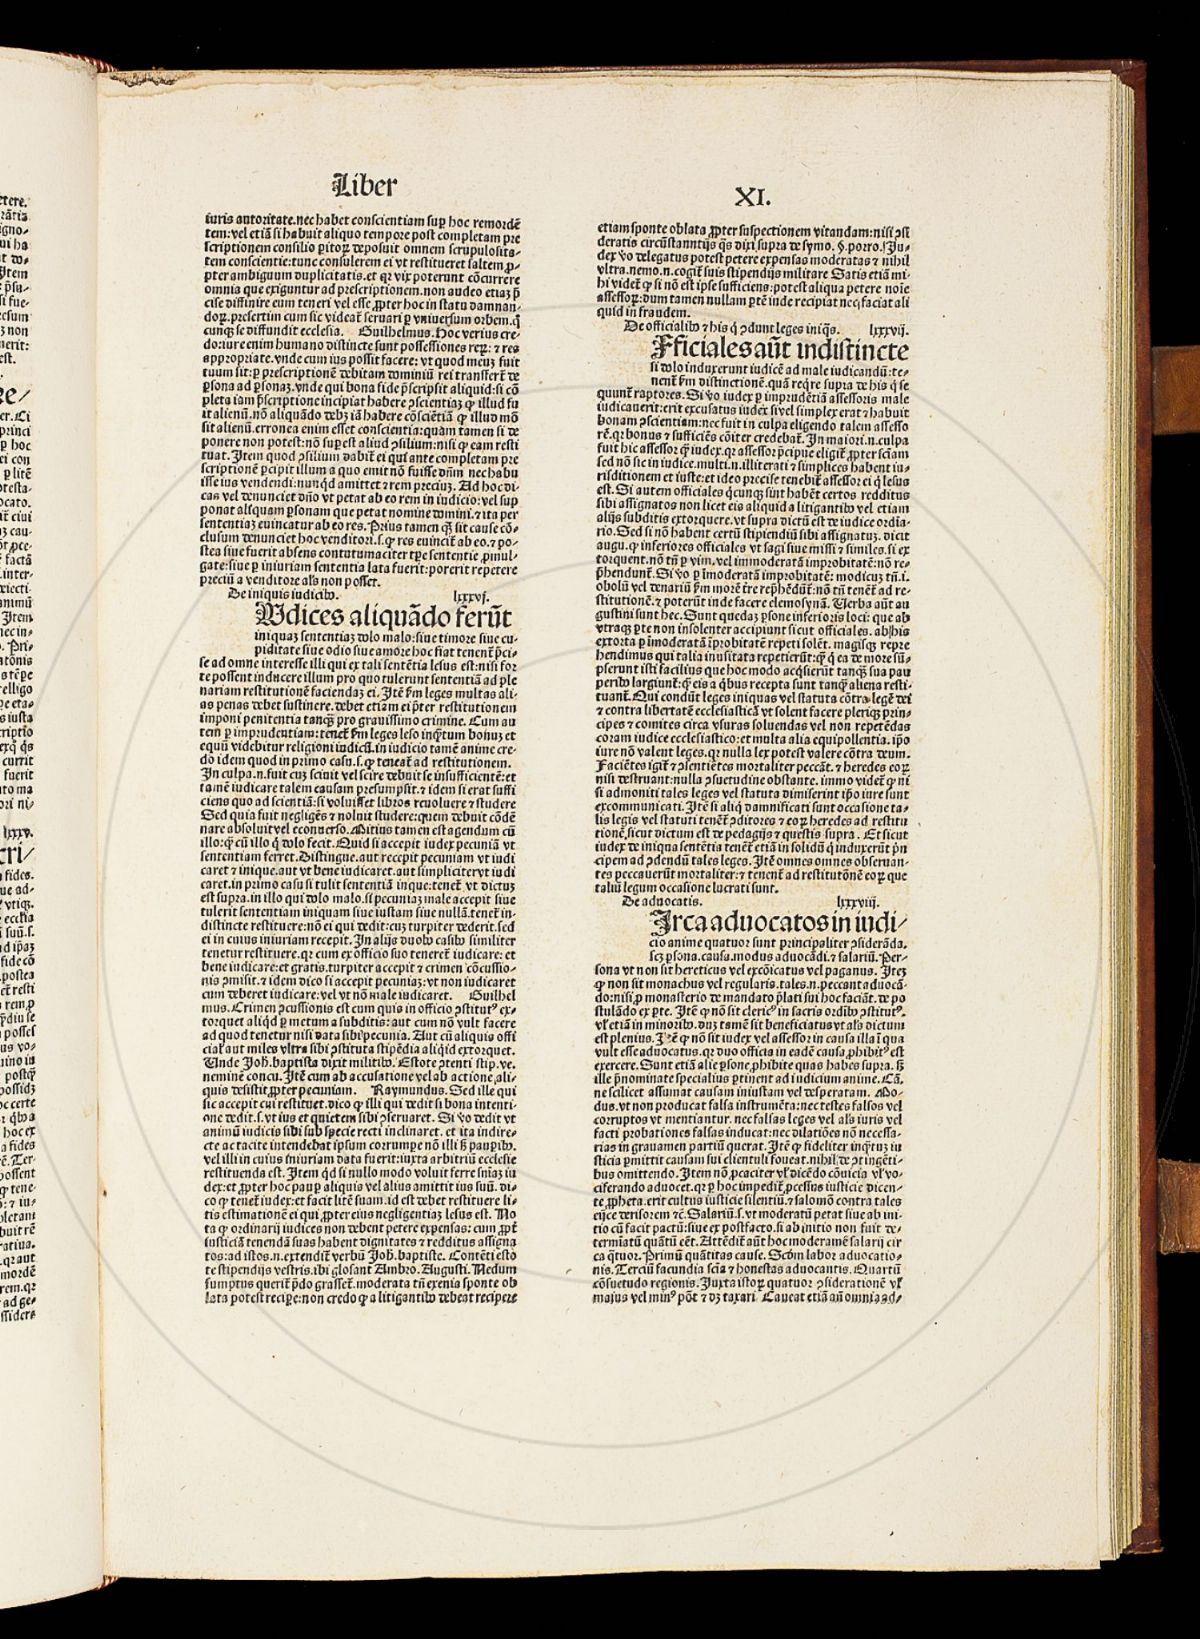 Liber
XI.
iuris autoritate.nec habet conscientiam sup hoc remordē
tem:vel etiā si habuit aliquo tempore post completam pre
scriptionem consilio p̲itoꝝ deposuit omnem scrupulosita-
tem conscientie:tunc consulerem ei vt restitueret saltem ꝓ-
pter ambiguum duplicitatis.et qꝛ vix poterunt cōcurrere
omnia que exiguntur ad prescriptionem.non audeo etiaꝫ p̄
cise diffinire eum teneri vel esse ꝓpter hoc in statu damnan-
doꝝ.presertim cum sic videat̄ seruari ꝑ vniuersum orbem.q̄
cunqꝫ se diffundit ecclesia. Guilhelmus. Hoc verius cre-
do:iure enim humano distincte sunt possessiones reꝝ: ⁊ res
appropriate.vnde cum ius possit facere: vt quod meuꝫ fuit
tuum sit:ꝑ prescriptionē debitam dominiū rei transfert̄ de
ꝑsona ad ꝑsonaꝫ.vnde qui bona fide p̄scripsit aliquid:si cō
pleta iam p̄scriptione incipiat habere ꝯscientiaꝫ ꝙ illud fu
it alienū.nō aliquādo debꝫ iā habere cōsciētiā ꝙ illud mō
sit alienū.erronea enim esset conscientia:quam tamen si de
ponere non potest:nō sup est aliud ꝯsilium:nisi ꝙ eam resti
tuat. Item quod ꝯsilium dabit̄ ei qui ante completam pre
scriptionē ꝑcipit illum a quo emit nō fuisse dn̄m nec habu
isse ius vendendi:nunqd amittet ⁊ rem ⁊ preciuꝫ. Ad hoc di-
cas vel denunciet dn̄o vt petat ab eo rem in iudicio:vel sup
ponat aliquam ꝑsonam que petat nomine domini.⁊ ita per
sententiaꝫ euincatur ab eo res. Prius tamen qꝫ sit cause cō-
clusum denunciet hoc venditori.s.ꝙ res euincit̄ ab eo.⁊ po-
stea siue fuerit absens contutumaciter tꝑe sententie ꝓmul-
gate:siue ꝑ iniuriam sententia lata fuerit:porerit repetere
preciū a venditore als non posset.
De iniquis iudicibꝰ. lxxxvj.
Udices aliquādo ferūt
iniquaꝫ sententiaꝫ dolo malo:siue timore siue cu-
piditate siue odio siue amore hoc fiat tenent̄ p̄ci-
se ad omne interesse illi qui ex tali sentētia lesus est:nisi for
te possent inducere illum pro quo tulerunt sententiā ad ple
nariam restitutionē faciendaꝫ ei. Itē fm leges multas ali-
as penas debet sustinere.debet etiam ei p̄ter restitutionem
imponi penitentia tanqꝫ pro grauissimo crimine. Cum au
tem ꝑ imprudentiam:tenet̄ fm leges leso inqꝫtum bonuꝫ et
equū videbitur religioni iudicū.in iudicio tamē anime cre-
dō idem quod in primo casu.s.ꝙ teneat̄ ad restitutionem.
In culpa.n.fuit cuꝫ sciuit vel scire debuit se insufficientē:et
tamē iudicare talem causam presumpsit.⁊ idem si erat suffi
ciens quo ad scientiā:si voluisset libros reuoluere ⁊ studere
Sed quia fuit negligēs ⁊ noluit studere:quem debuit cōdē
nare absoluit vel econuerso. Mitius tamen est agendum cū
illo:ꝙ cū illo q̄ dolo fecit. Quid si accepit iudex pecuniā vt
sententiam ferret. Distingue.aut recepit pecuniam vt iudi
caret ⁊ inique.aut vt bene iudicaret.aut simpliciter vt iudi
caret.in primo casu si tulit sententiā inique:tenet̄ vt dictuꝫ
est supra.in illo qui dolo malo.si pecuniaꝫ male accepit siue
tulerit sententiam iniquam siue iustam siue nullā.tenet̄ in-
distincte restituere:nō ei qui dedit:cuꝫ turpiter dederit.sed
ei in cuius iniuriam recepit. In alijs duobꝰ casibꝰ similiter
tenetur restituere.qꝛ cum ex officio suo teneret̄ iudicare: et
bene iudicare:et gratis.turpiter accepit ⁊ crimen cōcussio-
nis ꝯmisit.⁊ idem dico si accepit pecuniaꝫ:vt non iudicaret
cum deberet iudicare:vel vt nō male iudicaret. Guilhel
mus. Crimen ꝯcussionis est cum quis in officio ꝯstitutꝰ ex-
torquet aliqd ꝑ metum a subditis: aut cum nō vult facere
ad quod tenetur nisi data sibi pecunia. Aut cū aliquis offi
cial̄ aut miles vltra sibi ꝯstituta stipēdia aliqid extorquet.
Unde Joh̄.baptista dixit militibꝰ. Estote ꝯtenti stip.ve.
neminē concu. Itē cum ab accusatione vel ab actione ali-
quis desistit ꝓpter pecuniam. Raymundus. Sed ille qui
sic accepit cui restituet.dico ꝙ illi qui dedit si bona intenti-
one dedit.s.vt ius et quietem sibi ꝯseruaret. Si v̄o dedit vt
animū iudicis sibi sub specie recti inclinaret. et ita indire-
cte ac tacite intendebat ipsum corrumpe nō illi ß pauꝑibꝰ.
vel illi in cuius iniuriam data fuerit:iuxta arbitriū ecclesie
restituenda est. Item qd si nullo modo voluit ferre sn̄iaꝫ iu
dex:et ꝓpter hoc pauꝑ aliquis vel alius amittit ius suū. di-
co ꝙ tenet̄ iudex:et facit litē suam.id est debet restituere li-
tis estimationē ei qui ꝓpter eius negligentiaꝫ lesus est. No
ta ꝙ ordinarij iudices non debent petere expensas: cum ꝓpt̄
iusticiā tenendā suas habent dignitates ⁊ redditus assigna
tos:ad istos.n.extendit̄ verbū Joh̄.baptiste. Contēti esto
te stipendijs vestris.ibi glosant Ambro. Augusti. Nedum
sumptus querit̄ p̄do grasset̄.moderata tn̄ exenia sponte ob
lata potest reciꝑe:non credo ꝙ a litigantibꝰ debeat recipere
etiam sponte oblata ꝓpter suspectionem vitandam:nisi ꝯsi
deratis circūstantijs qs̄ dixi supra de symo. §.porro. Ju-
dex v̄o delegatus potest petere expensas moderatas ⁊ nihil
vltra.nemo.n.cogit̄ suis stipendijs militare Satis etiā mi-
hi videt̄ ꝙ si nō est ipse sufficiens:potest aliqua petere noīe
assessoꝝ:dum tamen nullam ꝑtē inde recipiat neqꝫ faciat ali
quid in fraudem.
De officialibꝰ ⁊ his q̄ ꝯdunt leges iniqs̄. lxxxvij.
Fficiales aūt indistincte
si dolo induxerunt iudicē ad male iudicandū:te-
nent̄ fm distinctionē.quā reqre supra de his q̄ se
quunt̄ raptores. Si v̄o iudex ꝑ imprudētiā assessoris male
iudicauerit:erit excusatus iudex si vel simplex erat ⁊ habuit
bonam ꝯscientiam:nec fuit in culpa eligendo talem assesso
rē.qꝛ bonus ⁊ sufficiēs cōiter credebat̄. In maiori.n.culpa
fuit hic assessor ꝙ iudex.qꝛ assessor p̄cipue eligit̄ ꝓpter sciam
sed nō sic in iudice.multi.n.illiterati ⁊ simplices habent iu-
risditionem et iuste:et ideo precise tenebit̄ assessor ei q̄ lesus
est. Si autem officiales qcunqꝫ sint habēt certos redditus
sibi assignatos non licet eis aliquid a litigantibꝰ vel etiam
alijs subditis extorquere.vt supra dictū est de iudice ordīa-
rio. Sed si nō habent certū stipendiū sibi assignatuꝫ. dicit
augu.ꝙ inferiores officiales vt sagi siue missi ⁊ similes.si ex
torquent.nō tn̄ ꝑ vim.vel immoderatā improbitatē:nō re-
p̄hendunt̄. Si v̄o ꝑ īmoderatā improbitatē: modicuꝫ tn̄.i.
obolū vel denariū fm morē t̄re rep̄hēdūt̄:nō tn̄ tenet̄ ad re-
stitutionē.⁊ poterūt inde facere elemosynā. Uerba aūt au
gustini sunt hec. Sunt quedaꝫ ꝑsone inferioris loci: que ab
vtraqꝫ ꝑte non insolenter accipiunt sicut officiales. ab his
extorta ꝑ īmoderatā īprobitatē repeti solēt. magisqꝫ repre
hendimus qui talia inusitata repetierūt:ꝙ q̄ ea de more sū-
pserunt isti facilius que hoc modo acqsierūt tanqꝫ sua pau
peribꝰ largiunt̄:ꝙ eis a qbus recepta sunt tanqꝫ aliena resti-
tuant̄. Qui condūt leges iniquas vel statuta cōtra legē dei
⁊ contra libertatē ecclesiasticā vt solent facere pleriqꝫ prin-
cipes ⁊ comites circa vsuras soluendas vel non repetēdas
coram iudice ecclesiastico:et multa alia equipollentia.ipo
iure nō valent leges.qꝛ nulla lex potest valere cōtra deum.
Faciētes igit̄ ⁊ ꝯsentiētes mortaliter peccāt.⁊ heredes eoꝝ
nisi destruant:nulla ꝯsuetudine obstante. immo videt̄ ꝙ ni
si admoniti tales leges vel statuta dimiserint ipo iure sunt
excommunicati. Itē si aliq̄ damnificati sunt occasione ta-
lis legis vel statuti tenēt̄ ꝯditores ⁊ eoꝝ heredes ad restitu
tionē.sicut dictum est de pedagijs ⁊ questis supra. Et sicut
iudex de iniqua sentētia tenet̄ etiā in solidū q̄ induxerūt p̄n
cipem ad ꝯdendū tales leges. Itē omnes omnes obseruan-
tes peccauerūt mortaliter:⁊ tenent̄ ad restitutōnē eoꝝ que
taliū legum occasione lucrati sunt.
De aduocatis. lxxxviij.
Irca aduocatos in iudi/
cio anime quatuor sunt principaliter ꝯsiderāda.
scꝫ ꝑsona.causa.modus aduocādi.⁊ salariū. Per-
sona vt non sit hereticus vel excōicatus vel paganus. Iteꝫ
ꝙ non sit monachus vel regularis.tales.n.peccant aduocā-
do:nisi ꝓ monasterio de mandato p̄lati sui hoc faciāt.de po
stulādo ex ꝑte. Itē ꝙ nō sit clericꝰ in sacris ordibꝰ ꝯstitutꝰ.
vl̄ etiā in minoribꝰ.duꝫ tamē sit beneficiatus vt als dictum
est plenius. Itē ꝙ nō sit iudex vel assessor in causa illa ī qua
vult esse aduocatus.qꝛ duo officia in eadē causa ꝓhibitꝰ est
exercere. Sunt etiā alie ꝑsone ꝓhibite quas habes supra. ß
ille p̄nominate specialius ꝑtinent ad iudicium anime. Cā.
ne scilicet assumat causam iniustam vel desperatam. Mo-
dus.vt non producat falsa instrumēta:nec testes falsos vel
corruptos vt mentiantur. nec falsas leges vel als iuris vel
facti probationes falsas inducat:nec dilatiōes nō necessa-
rias in grauamen partiū querat. Itē ꝙ fideliter inqꝫtuꝫ iu
sticia ꝑmittit causam sui clientuli foueat.nihil de ꝯtingēti-
bus omittendo. Item nō ꝓcaciter vl̄ dicēdo cōuicia vl̄ vo-
ciferando aduocet.qꝛ ꝑ hoc impedit̄ ꝓcessus iusticie dicen-
te ꝓpheta.erit cultus iusticie silentiū.⁊ salomō contra tales
eijce derisorem ⁊c̄. Salariū.s.vt moderatū petat siue ab ini-
tio cū facit pactū:siue ex postfacto.si ab initio non fuit de-
termīatū quātū eēt. Attēdit̄ aūt hoc moderamē salarij cir
ca qtuor. Primū quātitas cause. Scdm labor aduocatio-
nis. Terciū facundia scīa ⁊ honestas aduocantis. Quartū
cōsuetudo regionis. Juxta istoꝝ quatuor ꝯsiderationē vl̄
maius vel minꝰ pōt ⁊ dꝫ taxari Caueat etiā aū omnia ad-